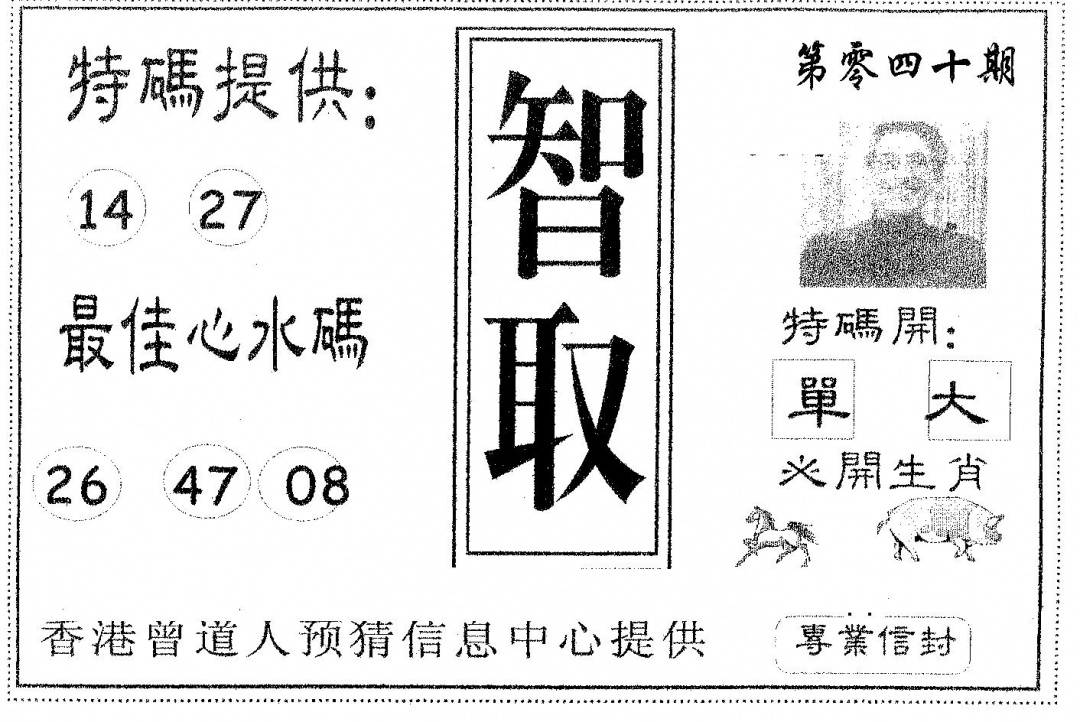 特碼提供：
14 27
最佳心水碼
26 47 08
智取
第零四十期
特碼開：
單 大
必開生肖
香港曾道人预猜信息中心提供
專業信封